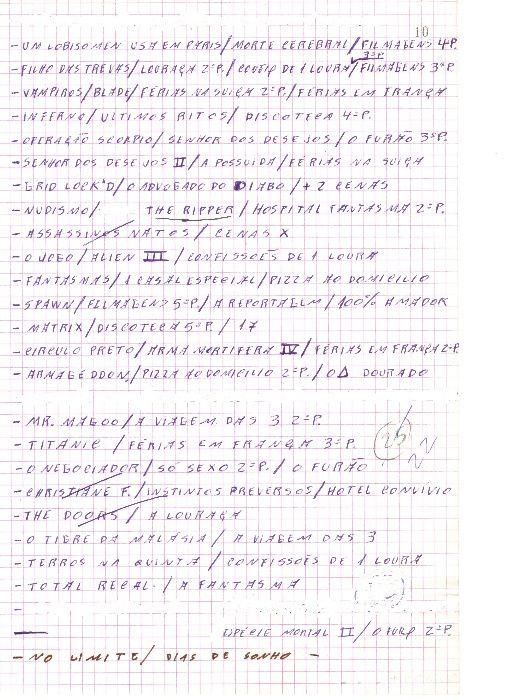 10
- UM LOBISOMEN USA EM PARIS / MORTE CEREBRAL / FILMAGENS 4ªP.
3ªP
- FILHO DAS TREVAS / LOURAÇA 2ªP. / CONFIÇ DE 1 LOURA / FILMAGENS 3ªP.
- VAMPIROS / BLADE / FÉRIAS NA SUIÇA 2ªP. / FÉRIAS EM FRANÇA
- INFERNO / ULTIMOS RITOS / DISCOTECA 4ªP.
- OPERAÇÃO SCORPIO / SENHOR DOS DESEJOS / O FURÃO 3ªP.
- SENHOR DOS DESEJOS II / A POSSUIDA / FÉRIAS NA SUIÇA
- GRID LOCK'D / O ADVOGADO DO DIABO / + 2 CENAS
- NUDISMO / THE RIPPER / HOSPITAL FANTASMA 2ªP.
- ASSASSINOS NATOS / CENAS X
- O JOGO / ALIEN III / CONFISSÕES DE 1 LOURA
- FANTASMAS / 1 CASAL ESPECIAL / PIZZA AO DOMICILIO
- SPAWN / FILMAGENS 5ªP. / A REPORTAGEM / 100% AMADOR
- MATRIX / DISCOTECA 5ªP. / 17
- CIRCULO PRETO / ARMA MORTIFERA IV / FÉRIAS EM FRANÇA 2ªP.
- ARMAGEDDON / PIZZA AO DOMICILIO 2ªP. / O Δ DOURADO
- MR. MAGOO / A VIAGEM DAS 3 2ªP.
- TITANIC / FÉRIAS EM FRANÇA 3ªP. 25
- O NEGOCIADOR / SÓ SEXO 2ªP. / O FURÃO
- CHRISTIANE F. / INSTINTOS PREVERSOS / HOTEL CONVIVIO
- THE DOORS / A LOURAÇA
- O TIGRE DA MALASIA / A VIAGEM DAS 3
- TERROS NA QUINTA / CONFISSÕES DE 1 LOURA
- TOTAL RECAL. / A FANTASMA
-
ESPÉCIE MORTAL II / O FURÃ 2ªP.
- NO LIMITE / DIAS DE SONHO -